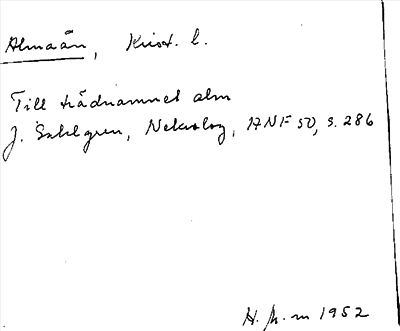 Almaån, Krist. l.
Till trädnamnet alm
J. Sahlgren, Nekrolog, ANF 50, s. 286
H. 1952